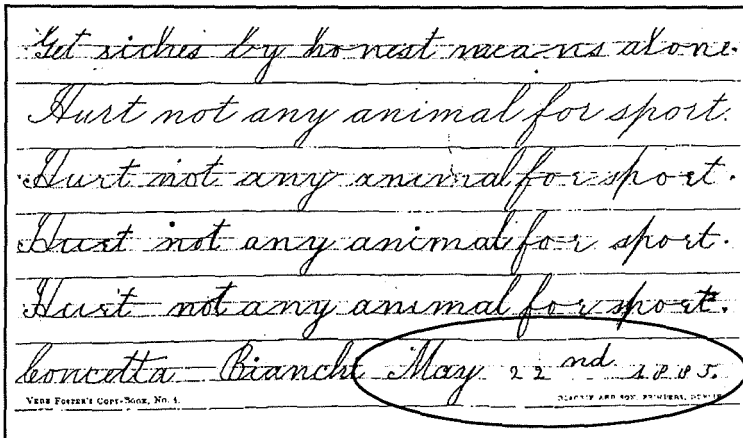 Get riches by honest means alone.
Hurt not any animal for sport.
Hurt not any animal for sport.
Hurt not any animal for sport.
Hurt not any animal for sport.
Concetta Bianchi May 22nd 1885.
VERE FOSTER'S COPY-BOOK, No. 4. BLACKIE AND SON, PRINTERS, DUBLIN